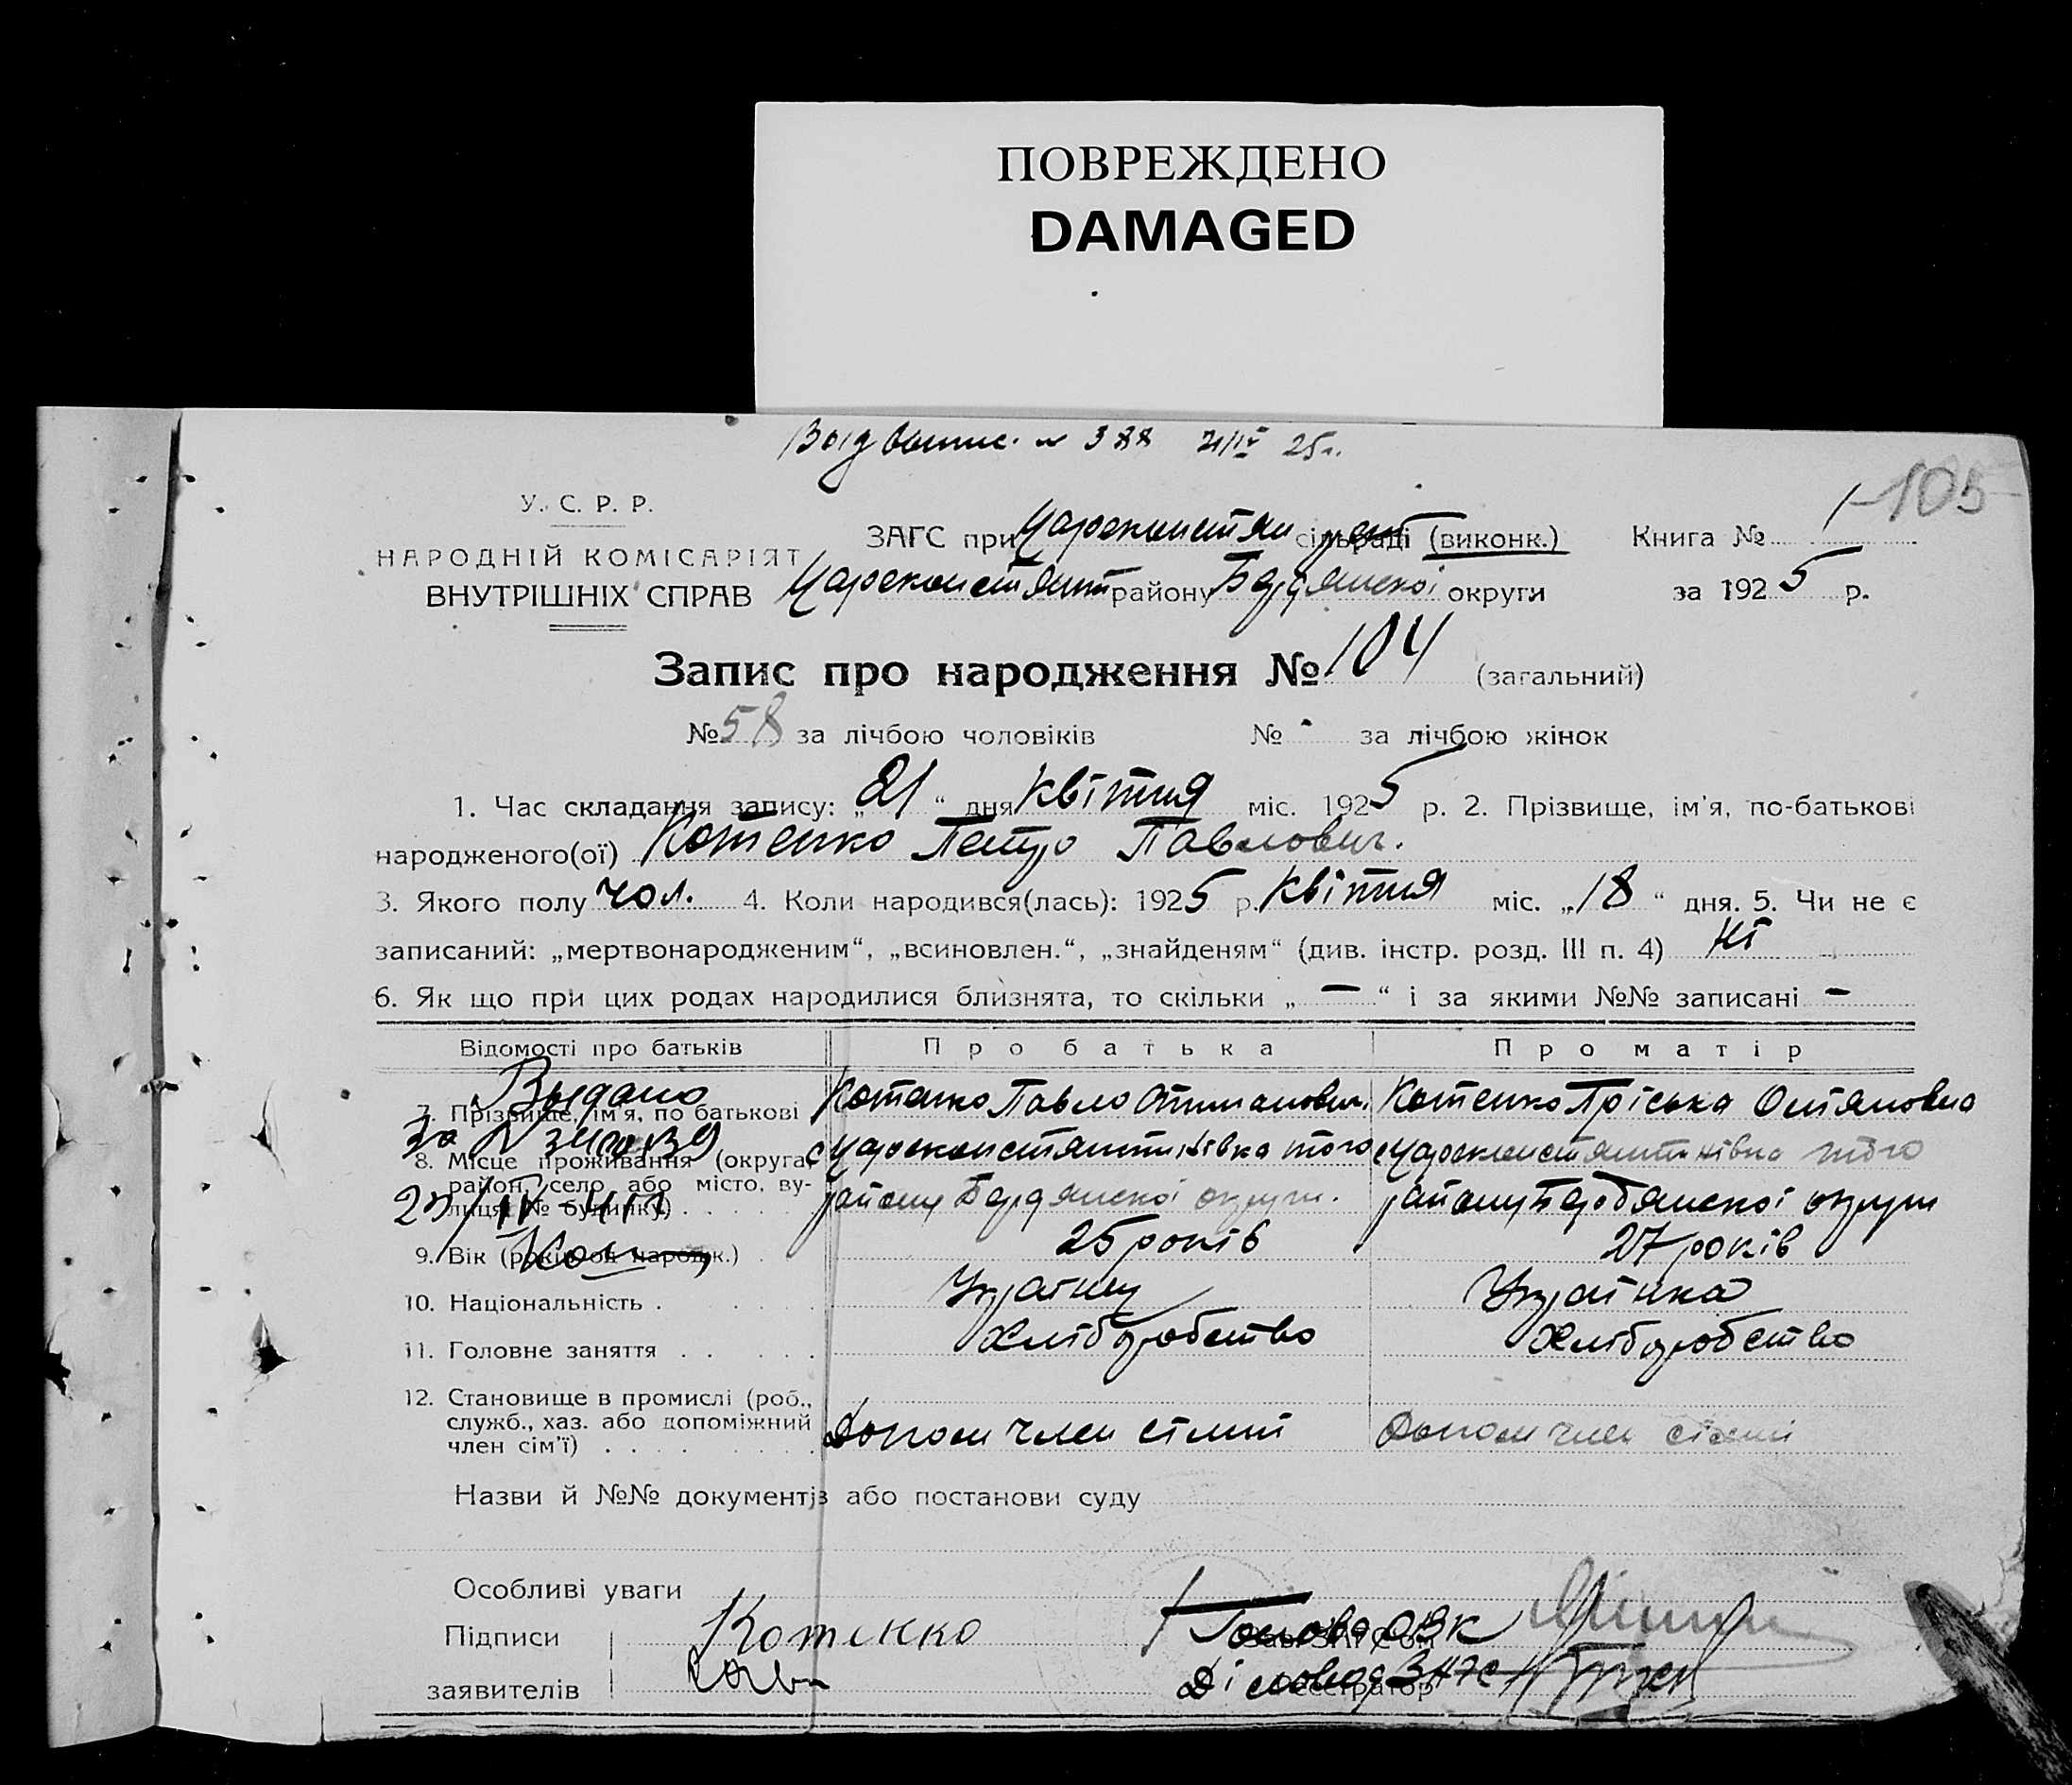 ПОВРЕЖДЕНО
DAMAGED
№ 388 21/IV 25г.
105
У. С. Р. Р.
НАРОДНІЙ КОМІСАРІЯТ
ВНУТРІШНІХ СПРАВ
ЗАГС при Цареконстян сільраді (виконк.) Книга № 1
Цареконстянт району Бердянскоі округи за 1925 р.
Запис про народження № 104 (загальний)
№ 58 за лічбою чоловіків № - за лічбою жінок
1. Час складання запису: „21“ дня квітня міс. 1925 р. 2. Прізвище, ім'я, по-батькові
народженого(ої) Котенко Петро Павлович.
3. Якого полу чол. 4. Коли народився(лась): 1925 р. квітня міс. „18“ дня. 5. Чи не є
записаний: „мертвонародженим“, „всиновлен.“, „знайденям“ (див. інстр. розд. III п. 4) ні
6. Як що при цих родах народилися близнята, то скільки „ — “ і за якими №№ записані —
Відомості про батьків Про батька Про матір
Выдано
7. Прізвище, ім'я, по батькові Котенко Павло Котенко Пріська Остаповна
за №
8. Місце проживання (округа, район, село або місто, вулиця, № будинку) с Цареконстянтинівка того району Бердянскоі округи. с Цареконстянтинівка того району Бердянскоі округи
9. Вік (років од народж.) 25 років 27 років
10. Національність Украінец Украінка
11. Головне заняття Хліборобство Хліборобство
12. Становище в промислі (роб.,
служб., хаз. або допоміжний
член сім'ї) Допом член сімѣі Допом член сімѣі
Назви й №№ документів або постанови суду
Особливі уваги
Підписи Котенко Голова РВК
заявителів Діловод ЗАГС